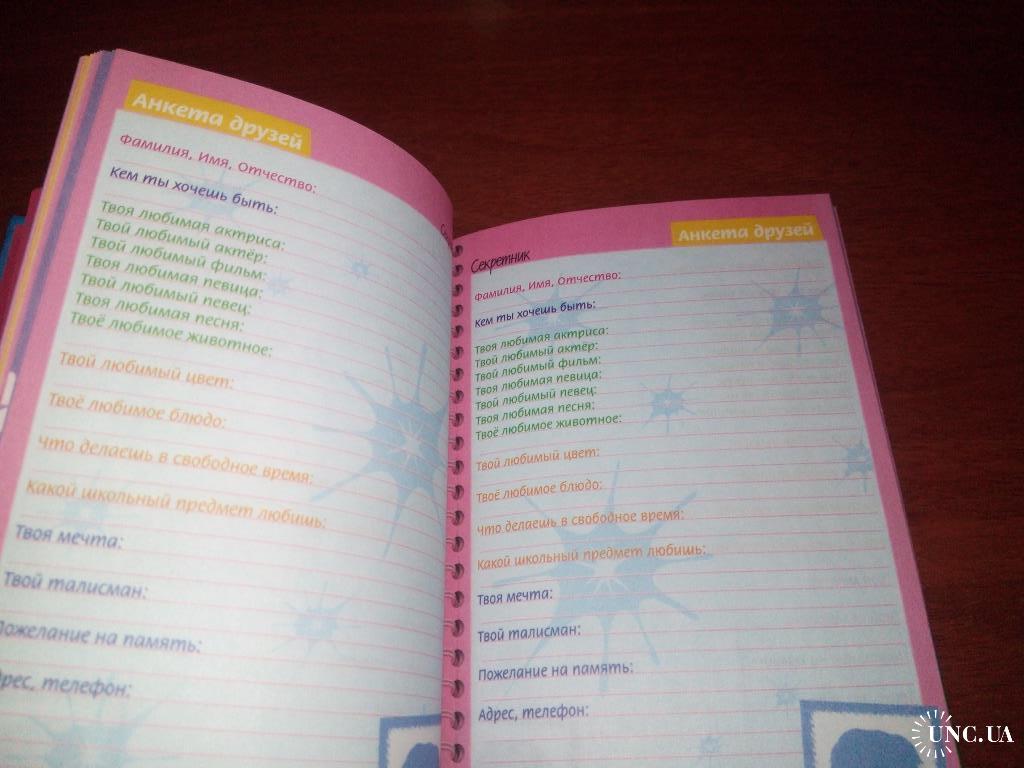 Анкета друзей
Фамилия, Имя, Отчество:
Кем ты хочешь быть:
Твоя любимая актриса:
Твой любимый актёр:
Твой любимый фильм:
Твоя любимая певица:
Твой любимый певец:
Твоя любимая песня:
Твоё любимое животное:
Твой любимый цвет:
Твоё любимое блюдо:
Что делаешь в свободное время:
Какой школьный предмет любишь:
Твоя мечта:
Твой талисман:
Пожелание на память:
дрес, телефон:
Секретник
Анкета друзей
Фамилия, Имя, Отчество:
Кем ты хочешь быть:
Твоя любимая актриса:
Твой любимый актёр:
Твой любимый фильм:
Твоя любимая певица:
Твой любимый певец:
Твоя любимая песня:
Твоё любимое животное:
Твой любимый цвет:
Твоё любимое блюдо:
Что делаешь в свободное время:
Какой школьный предмет любишь:
Твоя мечта:
Твой талисман:
Пожелание на память:
Адрес, телефон:
UNC.UA